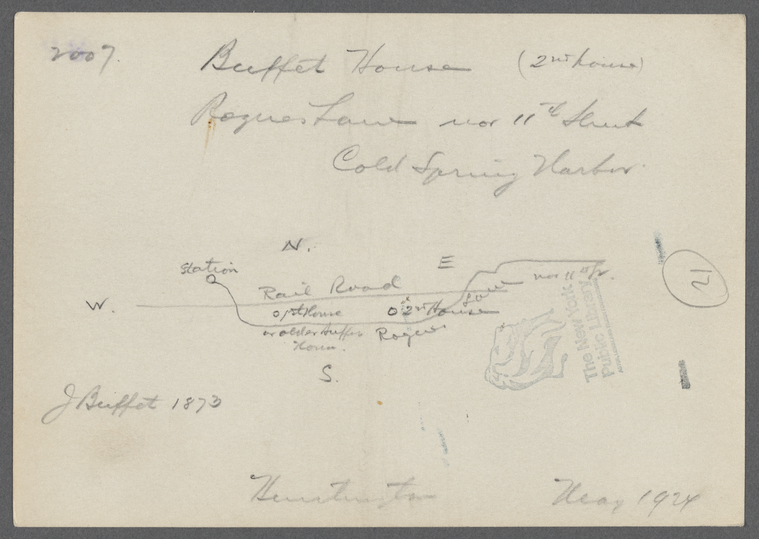 2007.
Buffet House (2nd house)
Rogues Lane nor 11th Street
Cold Spring Harbor.
N.
Station
E
Rail Road
Lane nor 11th St.
W.
1st House
2nd House
or older Buffet
House.
Rogues
21
The New York
Public Library
S.
J Buffet 1873
Huntington May 1924